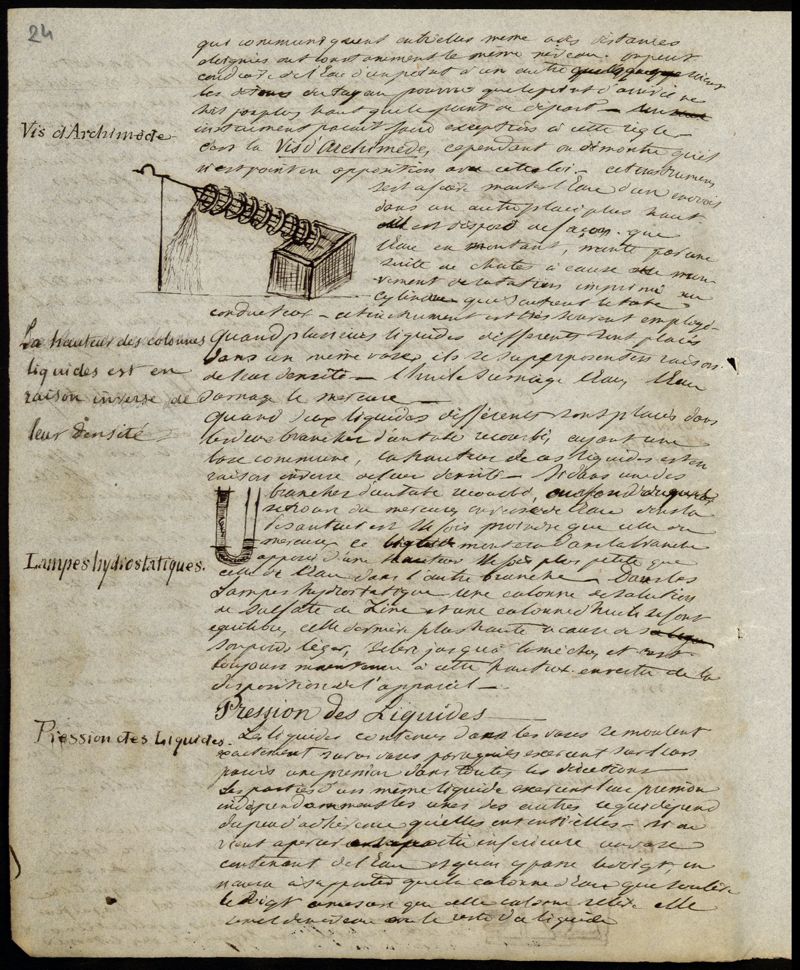 24
qui communiquent entr'elles même à des distances
éloignées ont constamment le même niveau. on peut
conduire de l'Eau d'un point à un autre
les du tuyau pourvu que le point d'arrivée ne
soit pas plus haut que le point de départ —
instrument parait faire exception à cette règle —
Vis d'Archimède
c'est la Vis d'Archimède, cependant on démontre qu'il
n'est point en opposition avec cette loi — cet instrument
sert à faire monter l'Eau d'un endroit
dans un autre placé plus haut
il est disposé de façon que
l'Eau en montant, monte par une
suite de chutes à cause du mou-
vement de rotation imprimé au
cylindre que soutient le tube
conducteur — cet instrument est très souvent employé.
La hauteur des colonnes
liquides est en
raison inverse de
leur densité
Quand plusieurs liquides différents sont placés
dans un même vase, ils se superposent en raison
de leur densité — l'huile surnage l'Eau, l'Eau
surnage le mercure —
Quand deux liquides différents sont placés dans
les deux branches d'un tube recourbé, ayant une
base commune, la hauteur de ces liquides est en
raison inverse de leur densité — Si dans une des
branches d'un tube recourbé,
se trouve du mercure, et de l'Eau dans la
est 13 fois moindre que celle du
mercure, ce montera dans la branche
opposée d'une hauteur 13 fois plus petite que
celle de l'Eau dans l'autre branche — Dans les
Lampes hydrostatiques.
Lampes hydrostatiques une colonne de solution
de Sulfate de Zinc et une colonne d'huile se font
équilibre, cette dernière plus haute à cause de
son poids léger, s'élève jusqu'à la mèche, et est
toujours maintenue à cette hauteur en vertu de la
disposition de l'appareil —
Pression des Liquides
Pression des Liquides.
Les liquides contenus dans les vases se moulent
exactement sur ces vases parcequ'ils exercent sur leurs
parois une pression dans toutes les directions
Les parties d'un même liquide exercent leur pression
indépendamment les unes des autres ce qui dépend
du peu d'adhérence qu'elles ont entr'elles — Si on
vient à percer à sa partie inférieure un vase
contenant de l'Eau et qu'on y passe le doigt, on
n'aura à supporter que la colonne d'Eau que soulève
le Doigt à mesure que cette colonne s'élève elle
se met de niveau avec le reste du liquide